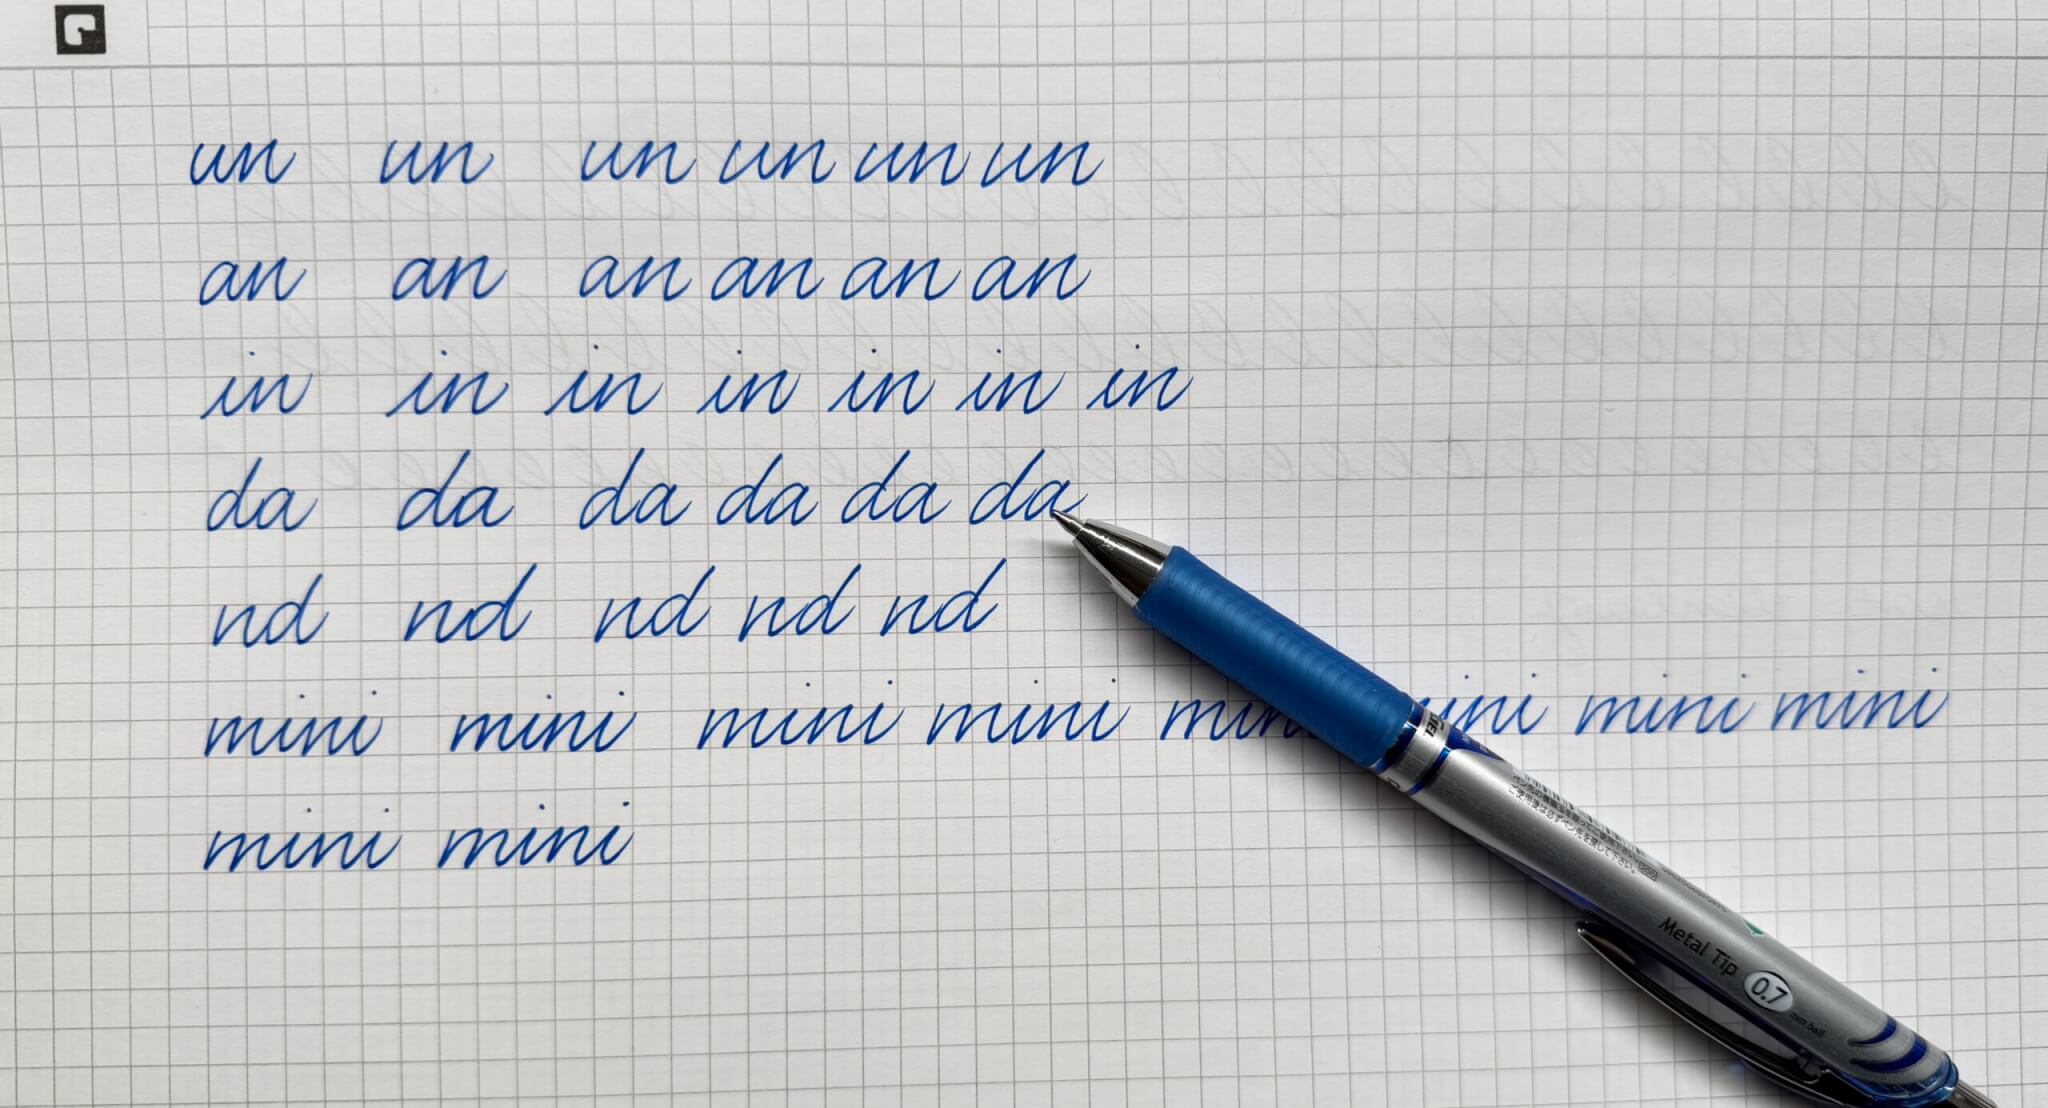 un un un un un un
an an an an an an
in in in in in in in
da da da da da da
nd nd nd nd nd
mini mini mini mini mini mini mini
mini mini
Metal Tip 0.7 mm ball